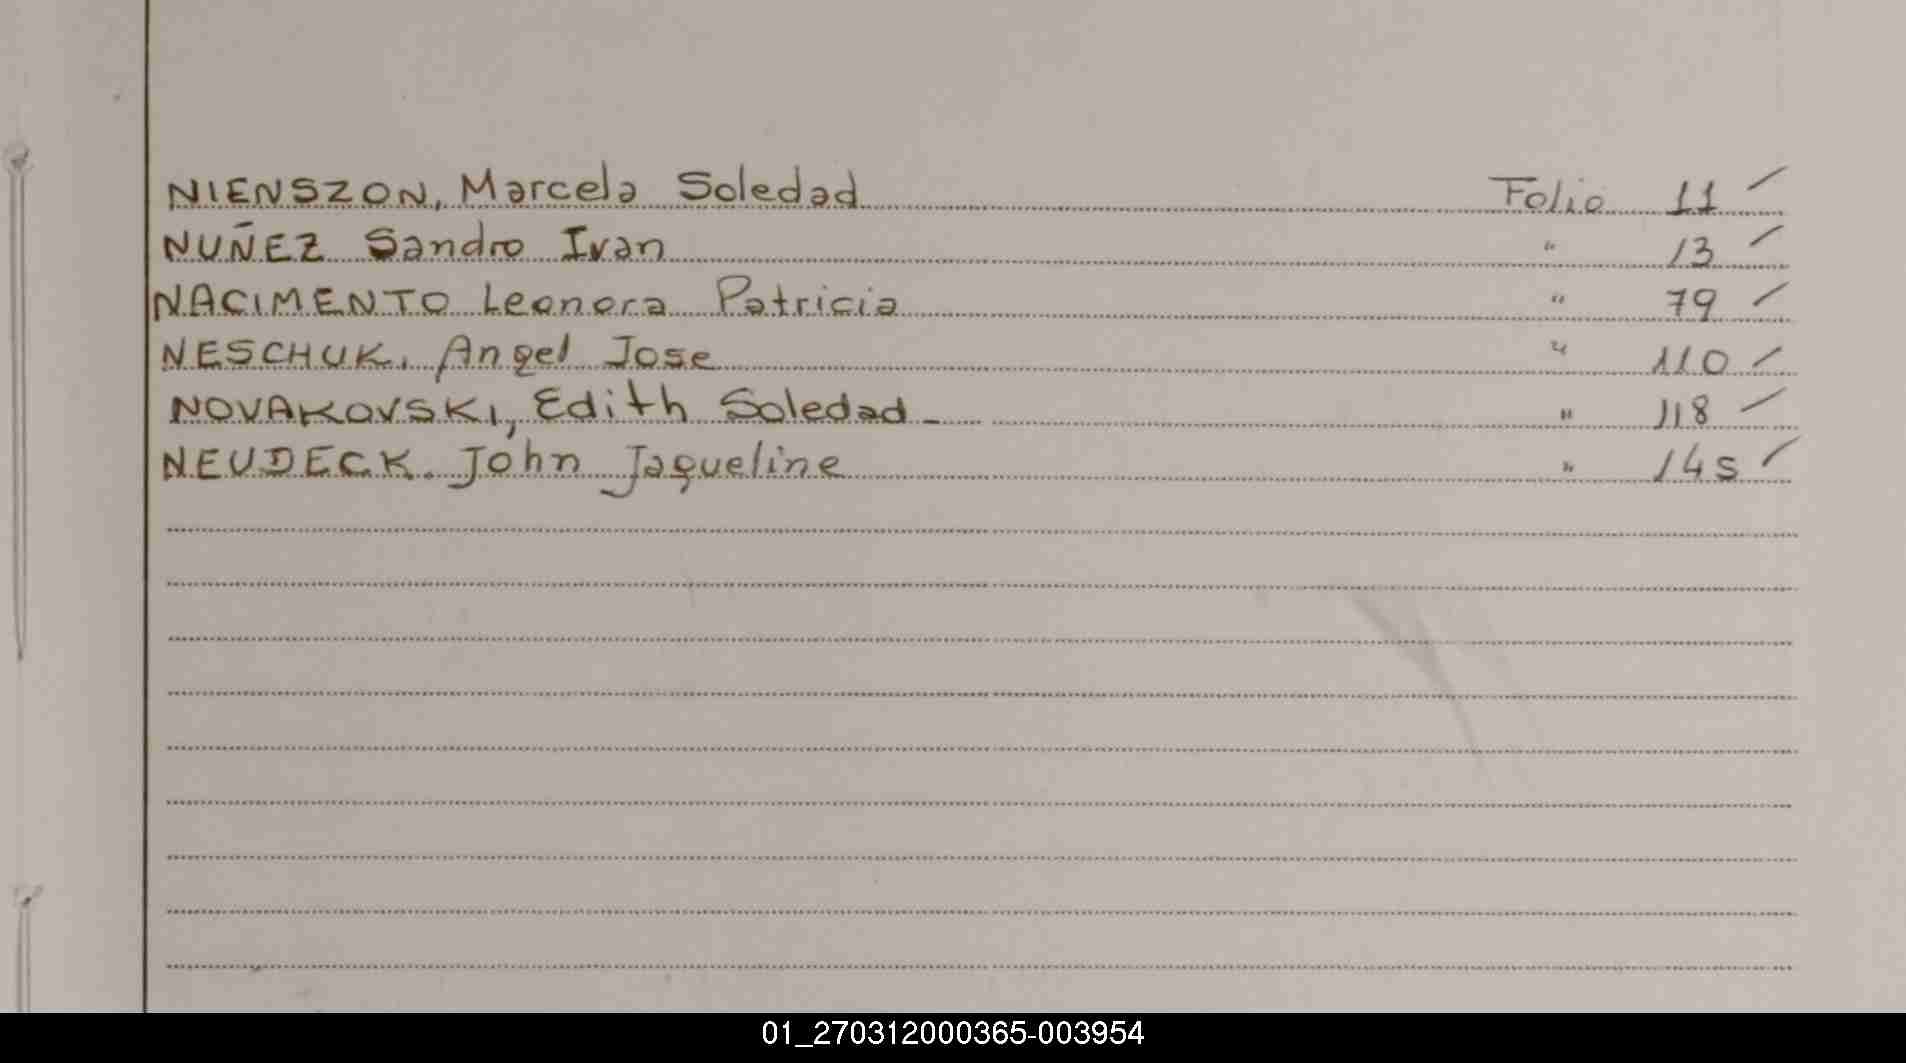 NIENSZON, Marcela Soledad Folio 11
NUÑEZ Sandro Ivan " 13
NACIMENTO Leonora Patricia " 79
NESCHUK, Angel Jose " 110
NOVAKOVSKI, Edith Soledad - " 118
NEUDECK. John Jaqueline " 145
01_270312000365-003954